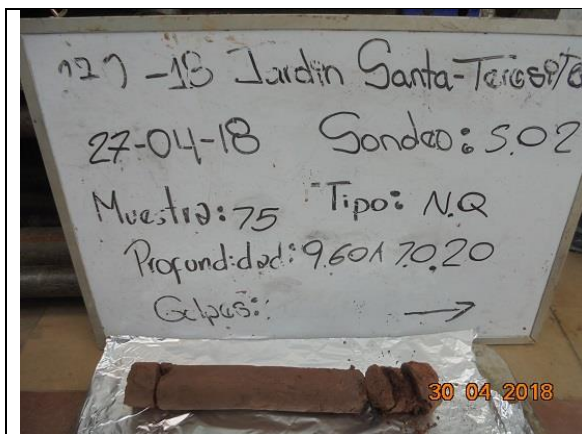 -18 Jardin Santa-Teresita
27-04-18 Sondeo: S.02
Muestra: 75 Tipo: N.Q
Profundidad: 9.60A 10.20
Golpes:
30 04 2018